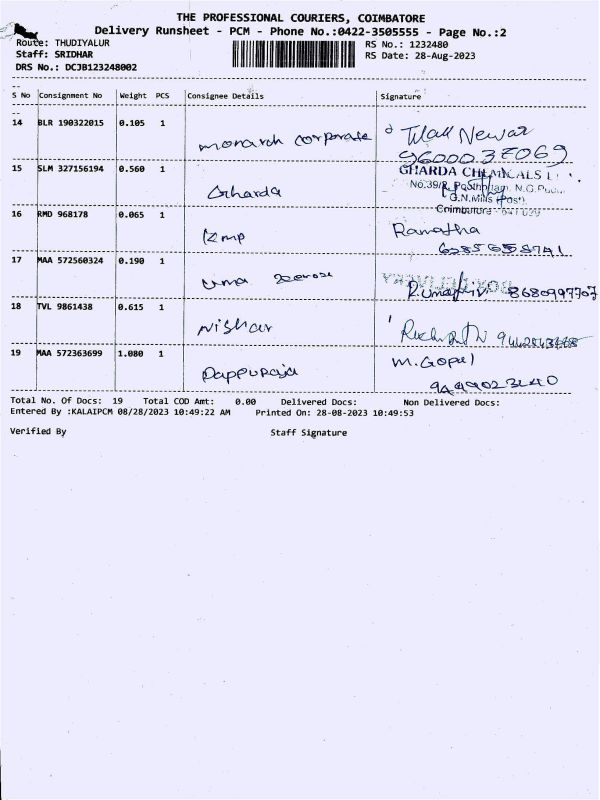 THE PROFESSIONAL COURIERS, COIMBATORE
Delivery Runsheet - PCM - Phone No.:0422-3505555 - Page No.:2
Route: THUDIYALUR RS No.: 1232480
Staff: SRIDHAR RS Date: 28-Aug-2023
DRS No.: DCJB123248002
S No Consignment No Weight PCS Consignee Details Signature
14 BLR 190322015 0.105 1
monarch corporate
Newar
9600037069
15 SLM 327156194 0.560 1
GHARDA CHEMICALS L
No.39/
G.N.Mills (Post)
Coimbatore - 641 029
Gharda
16 RMD 968178 0.065 1
Ramatha
17 MAA 572560324 0.190 1
uma
8680997707
18 TVL 9861438 0.615 1
Nishar
19 MAA 572363699 1.080 1
M.Gopal
Pappuraja
Total No. Of Docs: 19 Total COD Amt: 0.00 Delivered Docs: Non Delivered Docs:
Entered By :KALAIPCM 08/28/2023 10:49:22 AM Printed On: 28-08-2023 10:49:53
Verified By Staff Signature